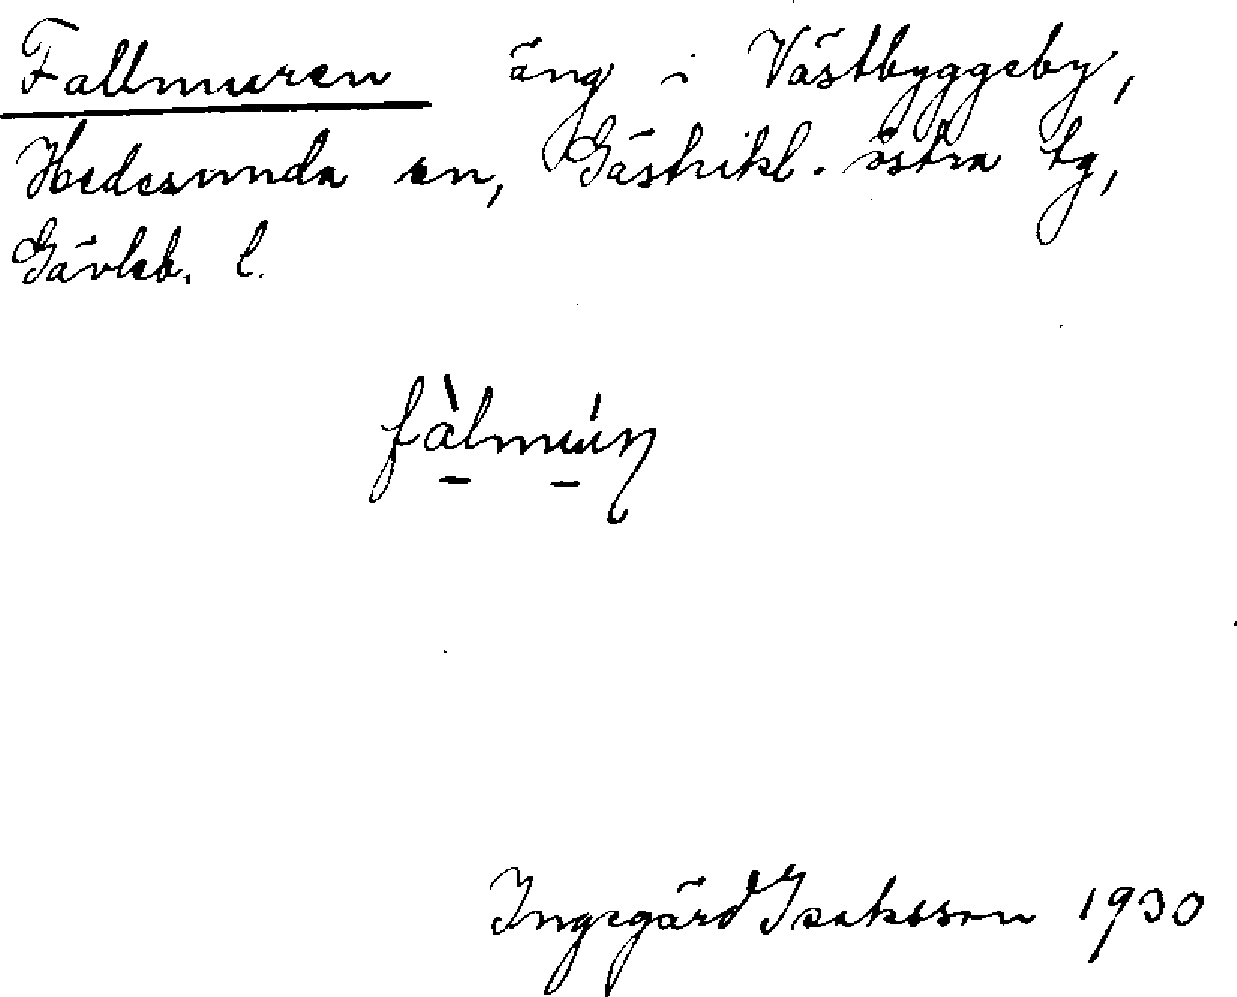 Fallmuren äng i Västbyggeby,
Hedesunda sn, Gästrikl. östra tg,
Gävleb. l.
fàlmúɳ
Ingegärd Isaksson 1930